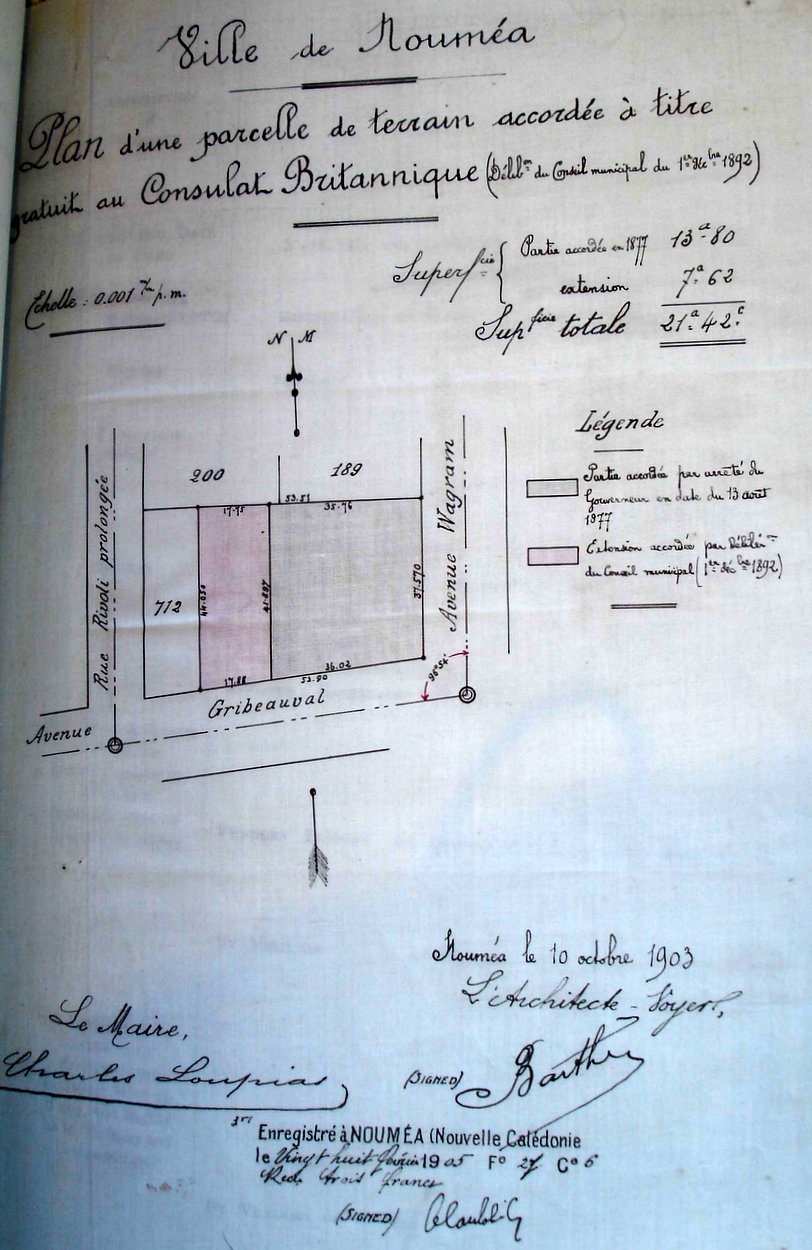 Ville de Nouméa
Plan d'une parcelle de terrain accordée à titre
gratuit au Consulat Britannique (Délib^on du Conseil municipal du 1^er déc^bre 1892)
Echelle : 0.001 ^m/m p. m.
Superf^cie { Partie accordée en 1877 13^a 80
extension 7^a 62
Sup^ficie totale 21^a 42^c
N M
Légende
Partie accordée par arreté du
Gouverneur en date du 13 août
1877
Extension accordée par Délibér^on
du Conseil municipal (1^er déc^bre 1892)
Rue Rivoli prolongée
200
189
Avenue Wagram
53.51
17.75
35.76
712
44.050
41.287
37.570
17.88
36.02
53.90
96°54'
Avenue
Gribeauval
Nouméa le 10 octobre 1903
L'Architecte-Voyer,
Le Maire,
Charles Loupias
(SIGNED) Barthe
Enregistré à NOUMÉA (Nouvelle Calédonie
le Vingt huit février 1905 F° 27 C^e 6
Reçu trois francs
(SIGNED)